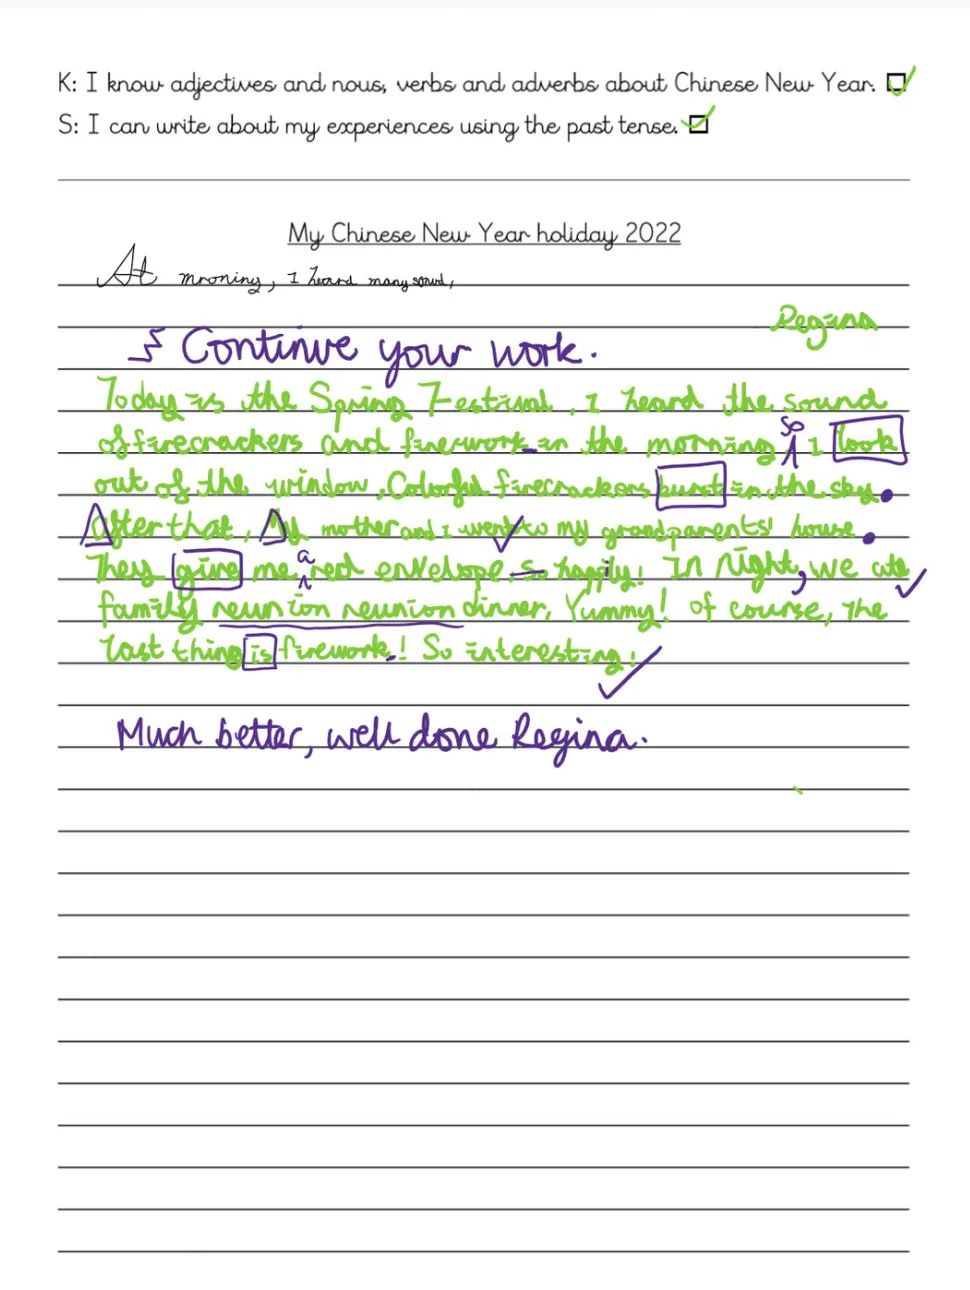 K: I know adjectives and nous, verbs and adverbs about Chinese New Year.
S: I can write about my experiences using the past tense.
My Chinese New Year holiday 2022
At mroning, I heard many sound,
Regina
Continue your work.
Today is the Spring Festival, I heard the sound
of firecrackers and firework in the morning so I look
out of the window, Colorful firecrackers burst in the sky.
After that, My mother and I went to my grandparents' house.
They give me a red envelope so happily! In Night, we ate
family reunion reunion dinner, Yummy! Of course, the
last thing is firework.! So interesting!
Much better, well done Regina.